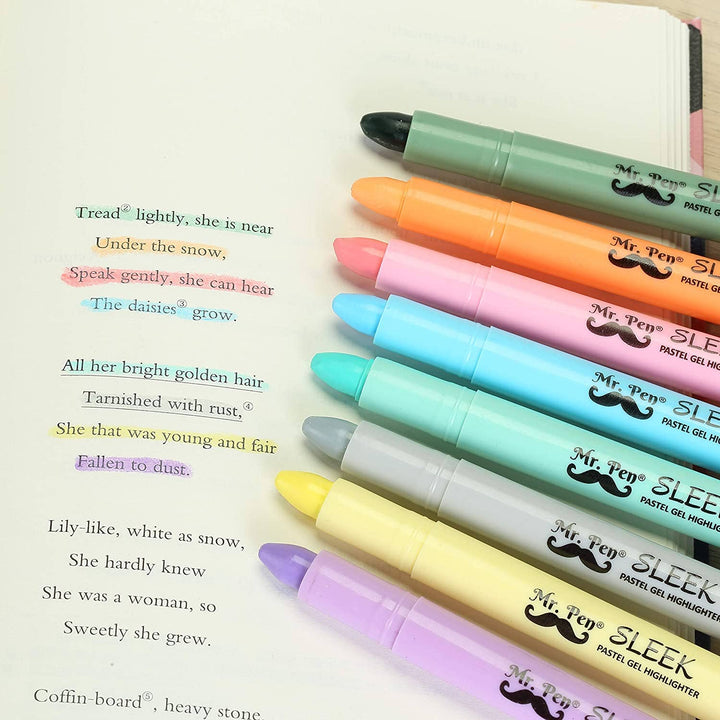 Tread② lightly, she is near
Under the snow,
Speak gently, she can hear
The daisies③ grow.
All her bright golden hair
Tarnished with rust,④
She that was young and fair
Fallen to dust.
Lily-like, white as snow,
She hardly knew
She was a woman, so
Sweetly she grew.
Coffin-board⑤, heavy stone,
Mr. Pen® SLEE
PASTEL GEL
Mr. Pen® SLE
PASTEL GEL HIG
Mr. Pen® SLEE
PASTEL GEL HIGHL
Mr. Pen® SLE
PASTEL GEL HIGH
Mr. Pen® SLEEK
PASTEL GEL HIGHLIG
Mr. Pen® SLEEK
PASTEL GEL HIGHLIGHTER
Mr. Pen® SLEEK
PASTEL GEL HIGHLIGHTER
Mr. Pen®